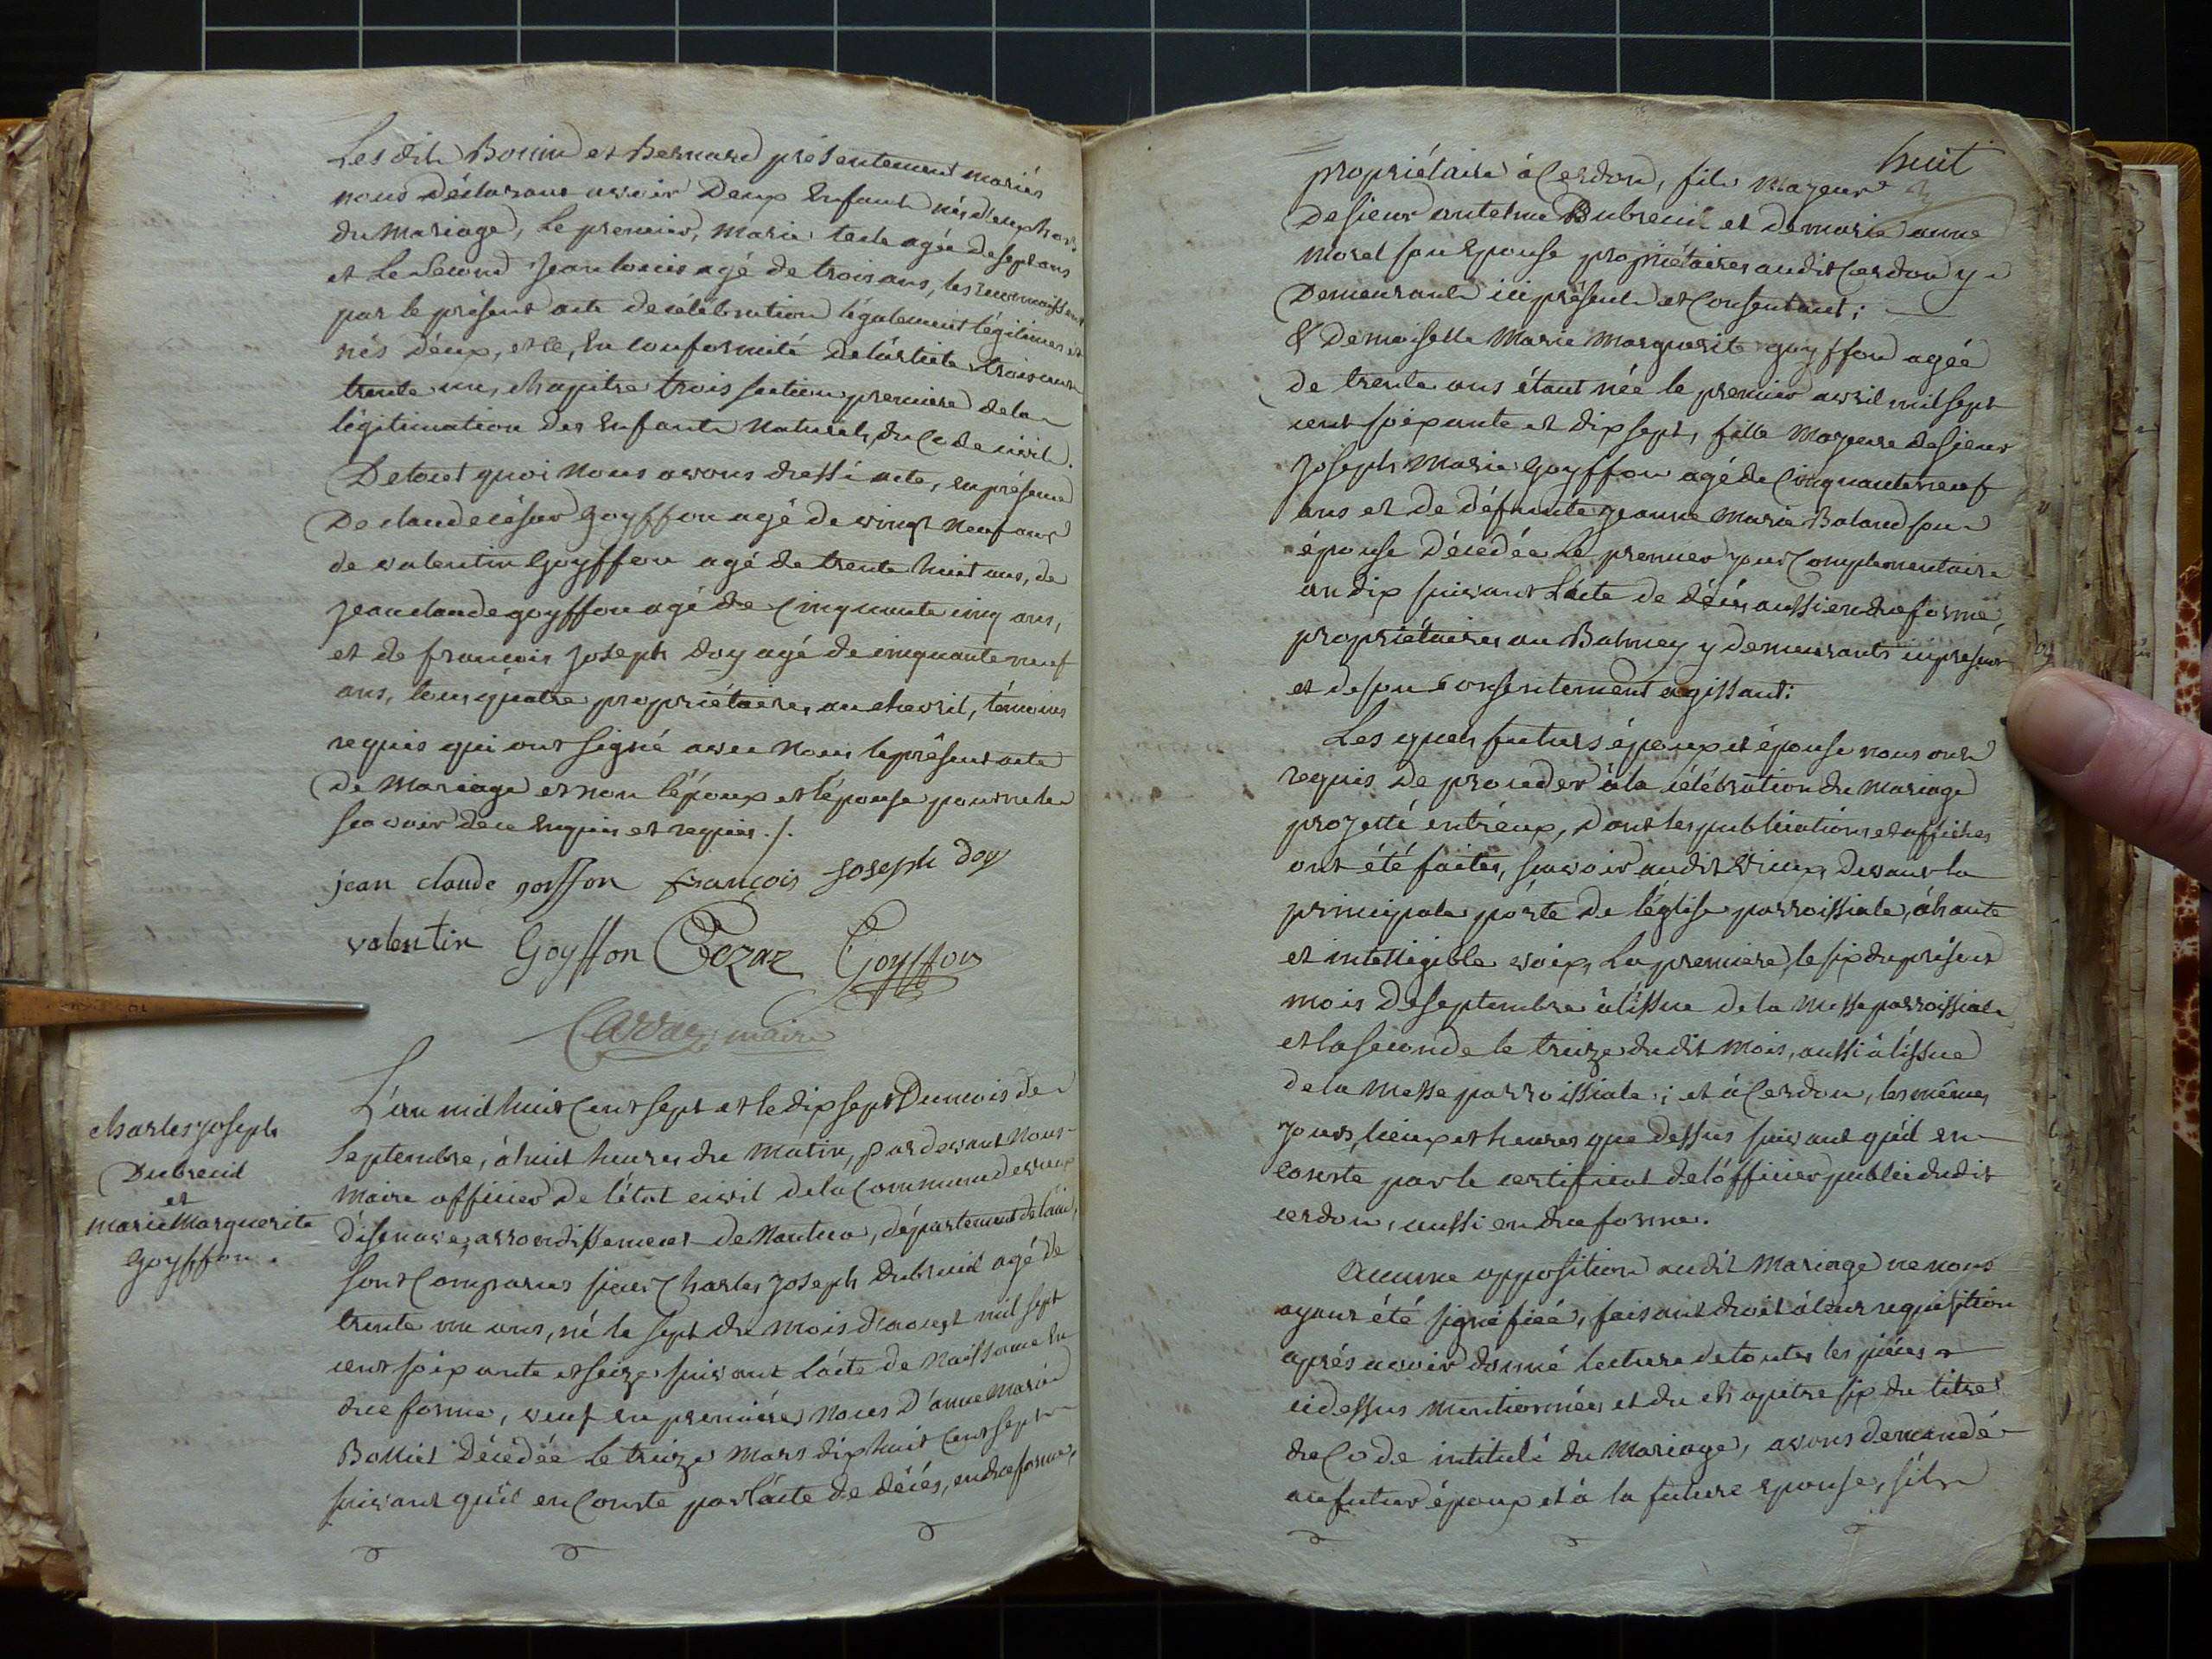 Les dits Bonin et Bernard présentement mariés
nous déclarant avoir Deux Enfants nés d'eux hors
du Mariage, Le premier, Marie agée de sept ans
et Le Second Jean louis agé de trois ans, les reconnoissent
par le présent acte de célébration légalement légitimes et
nés d'eux, et ce, En conformité de l'article trois cent
trente un, chapitre trois section premiere de la
légitimation des Enfants Naturels, du Code civil.
De tout quoi Nous avons dressé acte, en présence
De claude césar Goyffon agé de vingt Neuf ans
de valentin Goyffon agé de trente huit ans, de
Jean claude goyffon agé de Cinquante cinq ans,
et de françois Joseph doy agé de cinquante neuf
ans, tous quatre propriétaires au chevril, témoins
requis qui ont signé avec Nous le présent acte
De Mariage et non l'époux et l'épouse pour ne le
scavoir de ce Enquis et requis ./.
jean claude goiffon françois Joseph doy
valentin Goyffon Cezar Goyffon
Carraz maire
charles Joseph
Dubreuil
et
marie Marguerite
Goyffon.
L'an mil huit Cent sept et le dix sept Du mois de
Septembre, à huit heures du Matin, pardevant Nous
maire officier de l'état civil de la Commune de vieux
d'isenave, arrondissement de Nantua, département de l'ain,
sont Comparus sieur Charles Joseph dubreuil agé de
trente un ans, né le sept du mois d'aoust mil sept
cent soixante et seize suivant L'acte de Naissance En
due forme, veuf En premières Noces D'anne Marie
Bolliet Décédée le treize Mars dix huit Cent sept
suivant qu'il en Conste par l'acte de décés, en due forme,
huit
propriétaire à Cerdon, fils Mayeur
De sieur antelme Dubreuil et de marie anne
Morel son Epouse propriétaires audit Cerdon y
Demeurants ici présents et Consentant;
& Demoiselle Marie Marguerite goyffon agée
de trente ans étant née le premier avril mil sept
cent soixante et dix sept, fille Mayeure de sieur
Joseph Marie Goyffon agé de Cinquante neuf
ans et de défunte Jeanne Marie Baland son
épouse Décédée Le premier jour Complementaire
an dix suivant L'acte de décés aussi en due forme,
propriétaires au Balmey y demeurants ici présent
et de son Consentement agissant:
Les quels futurs époux et épouse nous ont
requis De proceder à la célébration du Mariage
projetté entr'eux, Dont les publications et affiches
ont été faites, scavoir audit Vieux, Devant la
principale porte De l'église parroissiale, à haute
et intelligible voix, La premiere, le six du présent
mois De septembre à l'issue de la Messe parroissiale
et la seconde le treize du dit Mois, aussi à l'issue
de la Messe parroissiale; et à Cerdon, les mêmes
jours, lieux et heures que dessus suivant qu'il en
conste par le certificat de l'officier public dudit
cerdon, aussi en due forme.
Aucune opposition audit Mariage ne nous
ayant été signifiée, faisant droit à leur requisition
aprés avoir donné lecture de toutes les pièces
cidessus mentionnées et du chapitre six du titre
du Code intitulé du Mariage, avons demandé
au futur époux et à la future épouse, s'ils